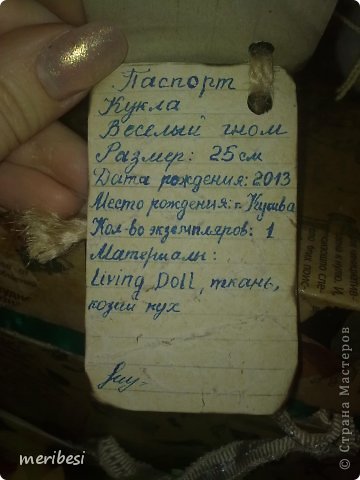 Паспорт
Кукла
Веселый гном
Размер: 25см
Дата рождения: 2013
Место рождения: г. Кушва
Кол-во экземпляров: 1
Материалы:
Living Doll, ткань,
козий пух
meribesi
© Страна Мастеров